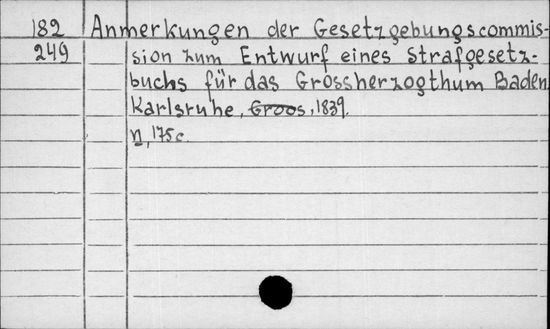 182 Anmerkungen der Gesetzgebungscommis-
249 sion zum Entwurf eines Strafgesetz-
buchs für das Grossherzogthum Baden.
Karlsruhe, Groos, 1839.
n, 175c.